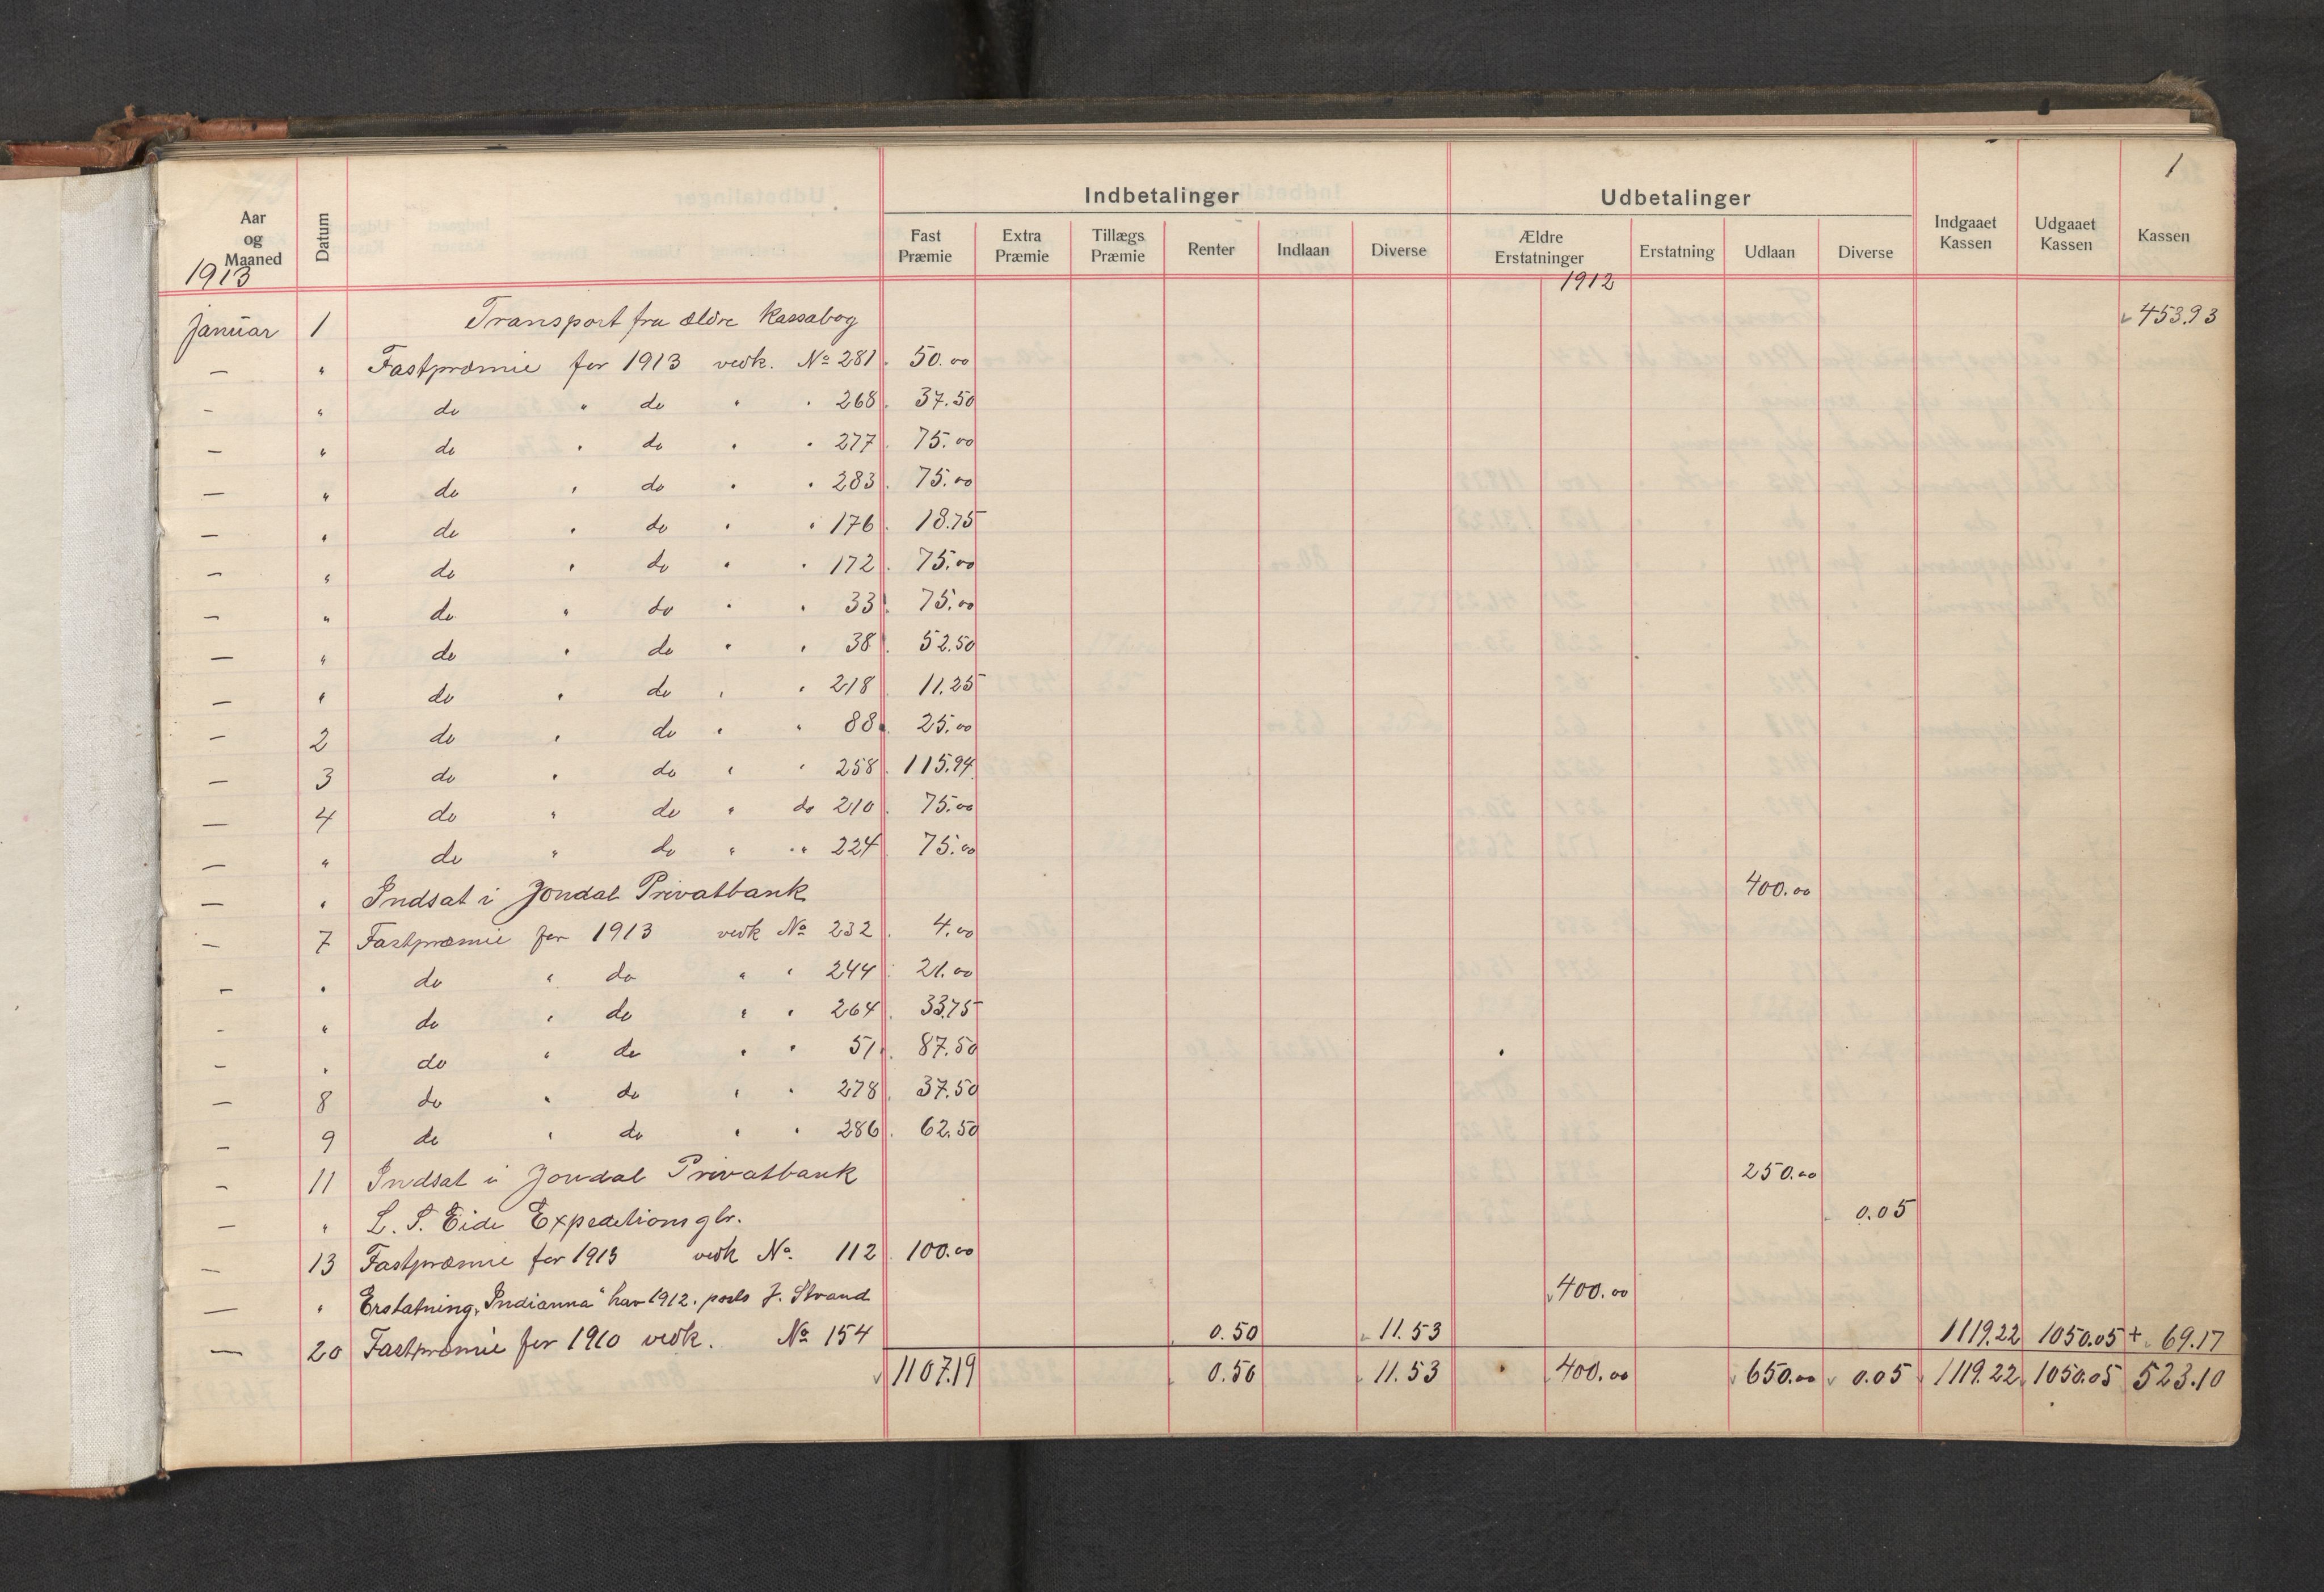 1
Indbetalinger Udbetalinger
Aar og Maaned Datum Fast Præmie Extra Præmie Tillægs Præmie Renter Indlaan Diverse Ældre Erstatninger Erstatning Udlaan Diverse Indgaaet Kassen Udgaaet Kassen Kassen
1913 1912
Januar 1 Transport fra ældre Kassabog 453.93
— " Fastpræmie for 1913 vedk. No 281 50.00
— " do " do " " 268 37.50
— " do " do " " 277 75.00
— " do " do " " 283 75.00
— " do " do " " 176 18.75
— " do " do " " 172 75.00
— " do " do " " 33 75.00
— " do " do " " 38 52.50
— " do " do " " 218 11.25
— 2 do " do " " 88 25.00
— 3 do " do " " 258 115.94
— 4 do " do " do 210 75.00
— " do " do " " 224 75.00
— " Indsat i Jondal Privatbank 400.00
— 7 Fastpræmie for 1913 vedk No 232 4.00
— " do " do " " 244 21.00
— " do " do " " 264 33.75
— " do " do " " 51 87.50
— 8 do " do " " 278 37.50
— 9 do " do " " 286 62.50
— 11 Indsat i Jondal Privatbank 250.00
— " L. S. Eide Expeditionsglr. 0.05
— 13 Fastpræmie for 1913 vedk No. 112 100.00
— " Erstatning „Indianna" hav 1912. J. Strand 400.00
— 20 Fastpræmie for 1910 vedk. No 154 0.50 11.53 1119.22 1050.05 + 69.17
1107.19 0.50 11.53 400.00 650.00 0.05 1119.22 1050.05 523.10